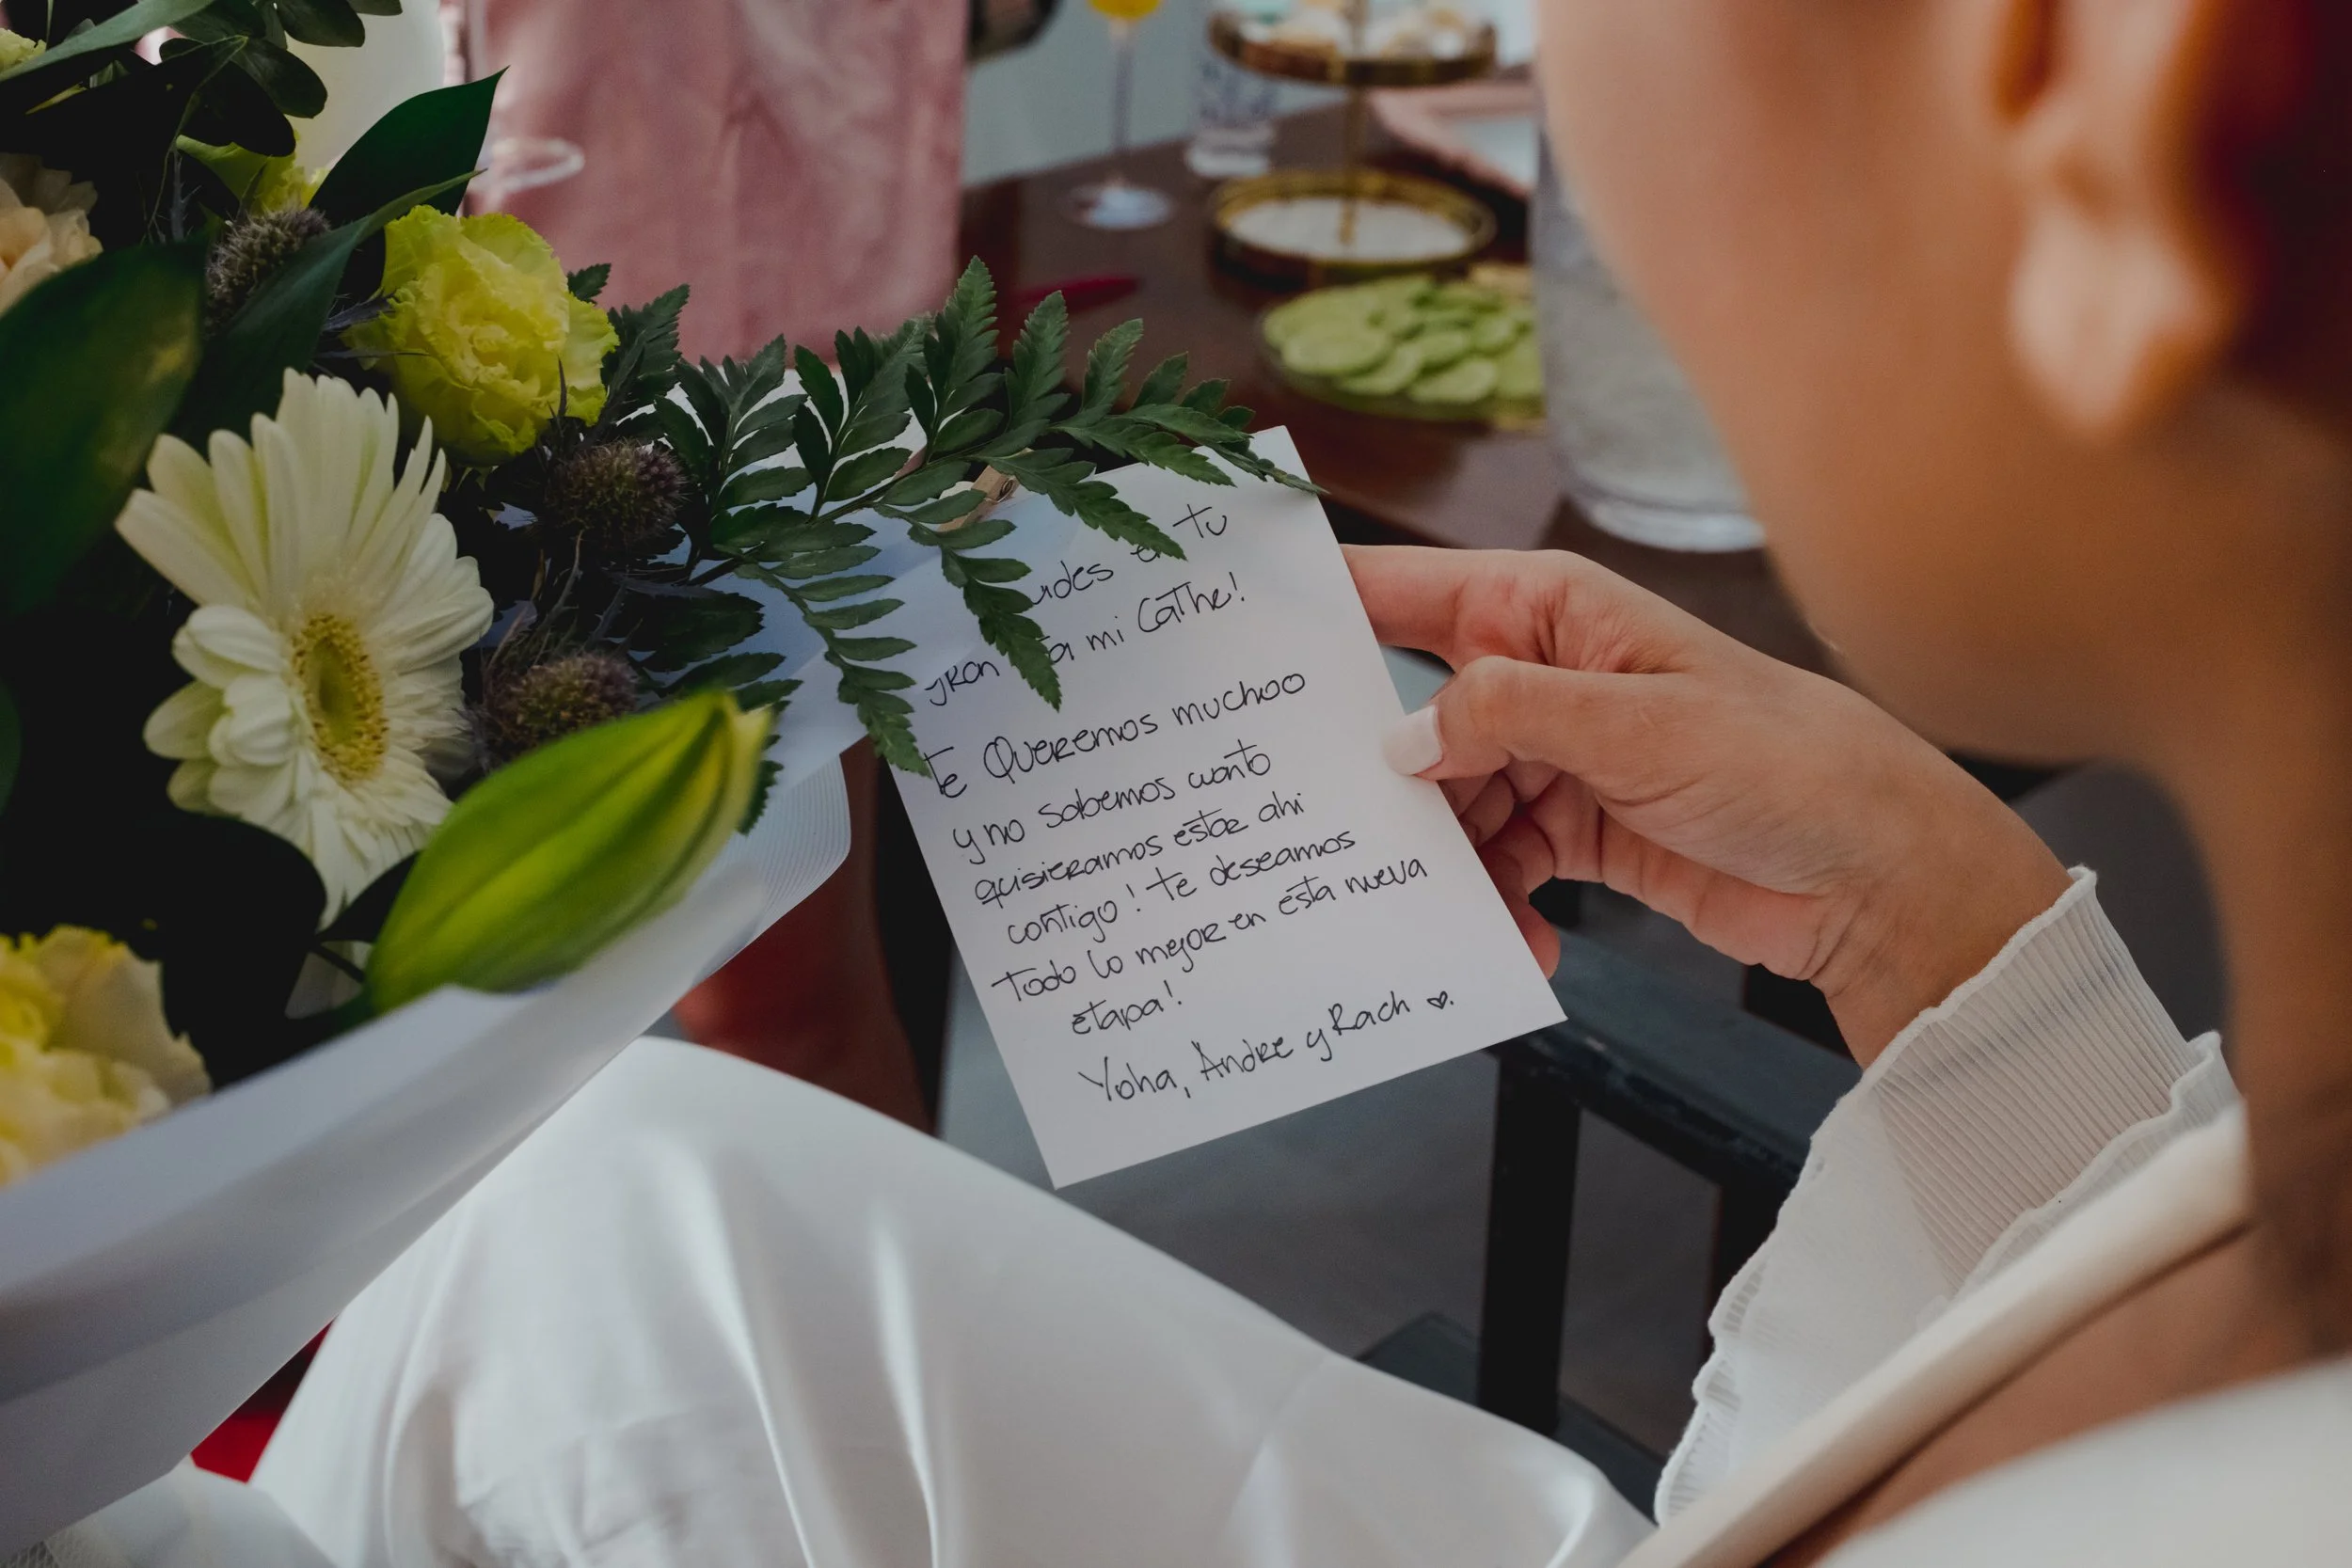 en tu
gran día mi Cathe!
te Queremos muchoo
y no sabemos cuanto
quisieramos estar ahi
contigo! te deseamos
todo lo mejor en esta nueva
etapa!
Yoha, Andre y Rach ♡.